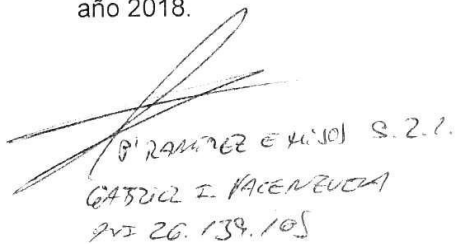 año 2018.
RAMIREZ E HIJOS S.R.L.
GABRIEL I. VALENZUELA
DNI 26.139.105